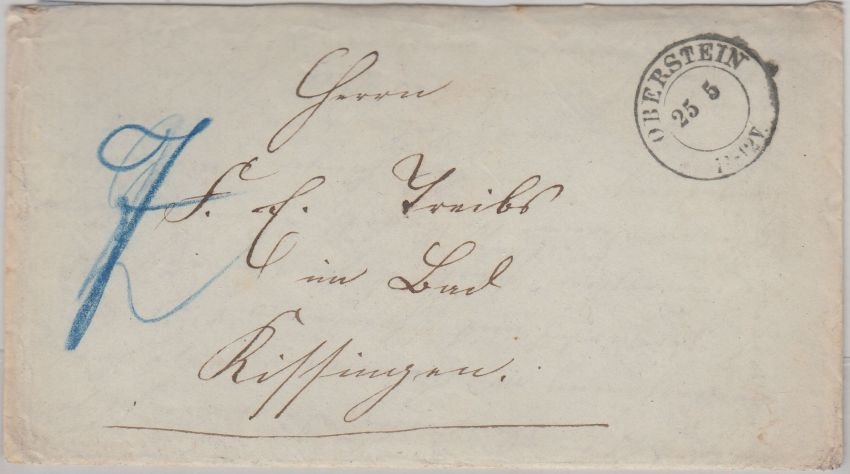 OBERSTEIN
25 5
Herrn
F. E. Treibs
im Bad
Kissingen.
7